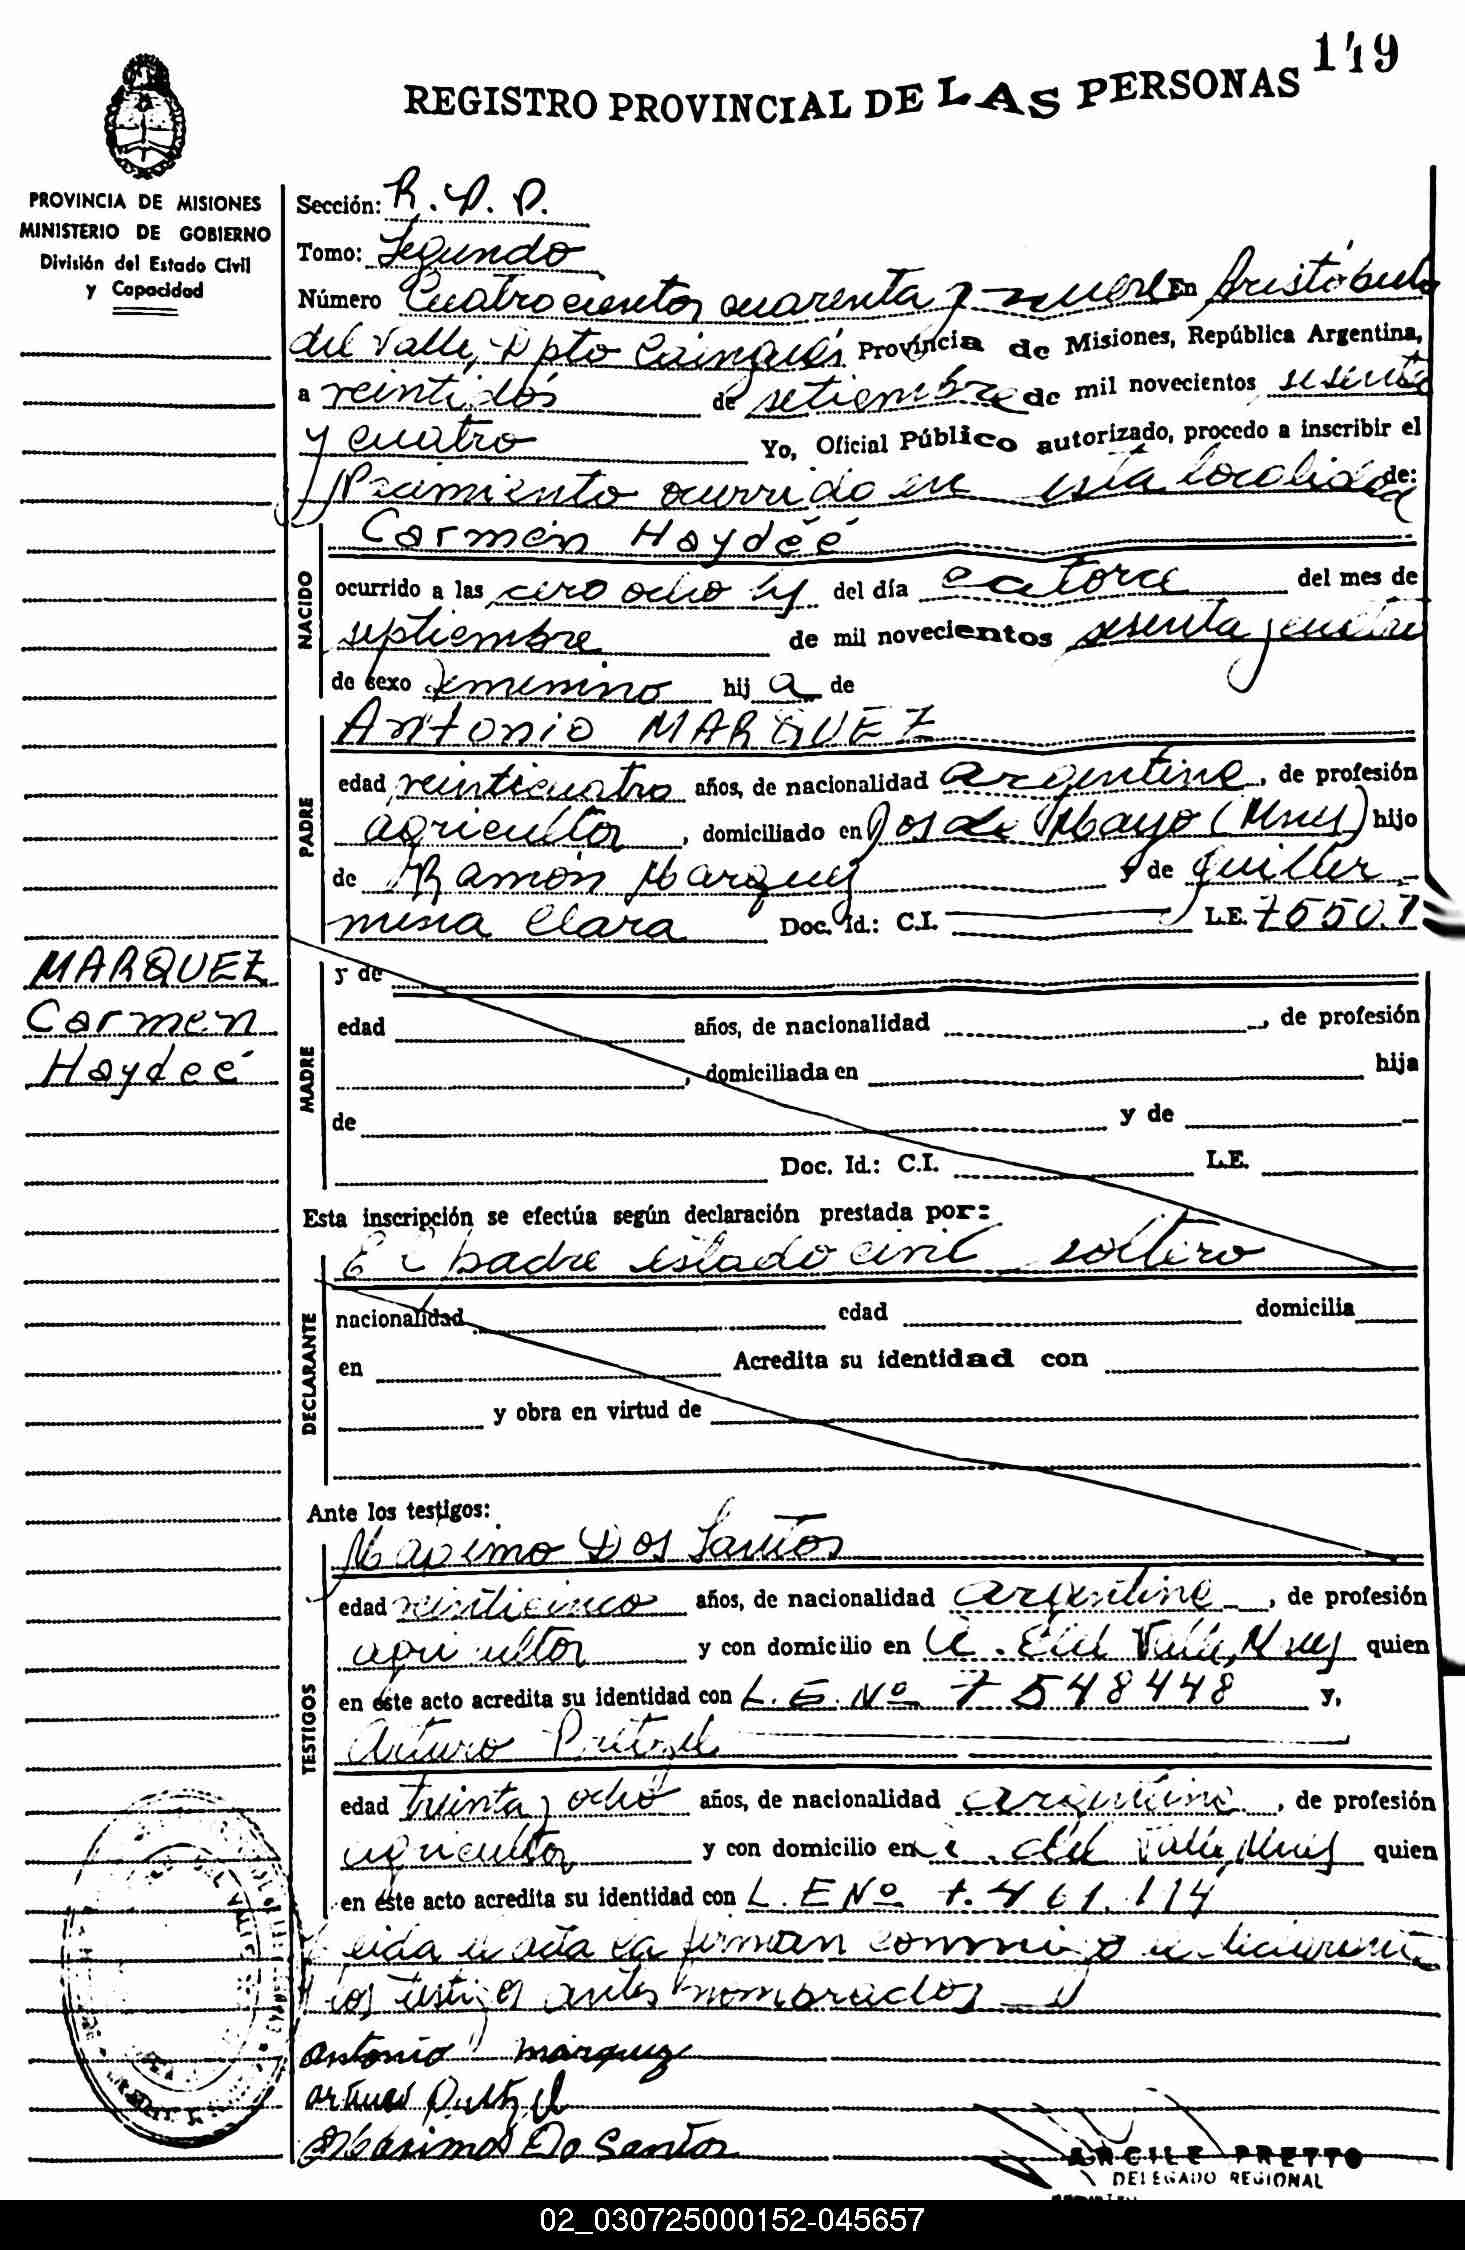 149
REGISTRO PROVINCIAL DE LAS PERSONAS
PROVINCIA DE MISIONES
MINISTERIO DE GOBIERNO
División del Estado Civil
y Capacidad
Sección: R. P. P.
Tomo: Segundo
Número Cuatrocientos cuarenta y nueve En Aristóbulo
del Valle, Dpto Cainguás Provincia de Misiones, República Argentina,
a veintidós de setiembre de mil novecientos sesenta
y cuatro Yo, Oficial Público autorizado, procedo a inscribir el
Nacimiento ocurrido en esta localidad de:
NACIDO
Carmen Haydéé
ocurrido a las cero ocho hs del día catorce del mes de
septiembre de mil novecientos sesenta y cuatro
de sexo femenino hij a de
PADRE
Antonio MARQUEZ
edad veinticuatro años, de nacionalidad argentino, de profesión
agricultor, domiciliado en Dos de Mayo (Mnes) hijo
de Ramón Marquez y de Guiller
mina Clara Doc. Id.: C.I. L.E. 75507
MARQUEZ
Carmen
Haydeé
MADRE
y de
edad años, de nacionalidad , de profesión
, domiciliada en hija
de y de
Doc. Id.: C.I. L.E.
Esta inscripción se efectúa según declaración prestada por:
DECLARANTE
El padre estado civil soltero
nacionalidad edad domicilia
en Acredita su identidad con
y obra en virtud de
Ante los testigos:
TESTIGOS
Maximo Dos Santos
edad veinticinco años, de nacionalidad argentino, de profesión
agricultor y con domicilio en A. del Valle, Mnes quien
en este acto acredita su identidad con L.E. Nº 7548448 y,
Arturo Pretzel
edad treinta y ocho años, de nacionalidad argentino, de profesión
agricultor y con domicilio en A. del Valle, Mnes quien
en este acto acredita su identidad con L.E Nº 7.461.114
Leida el acta la firman conmigo el declarante
y los testigos antes nombrados
antonio marquez
arturo Pretzel
Maximo Do Santos
ARCILE PRETTO
DELEGADO REGIONAL
02_030725000152-045657